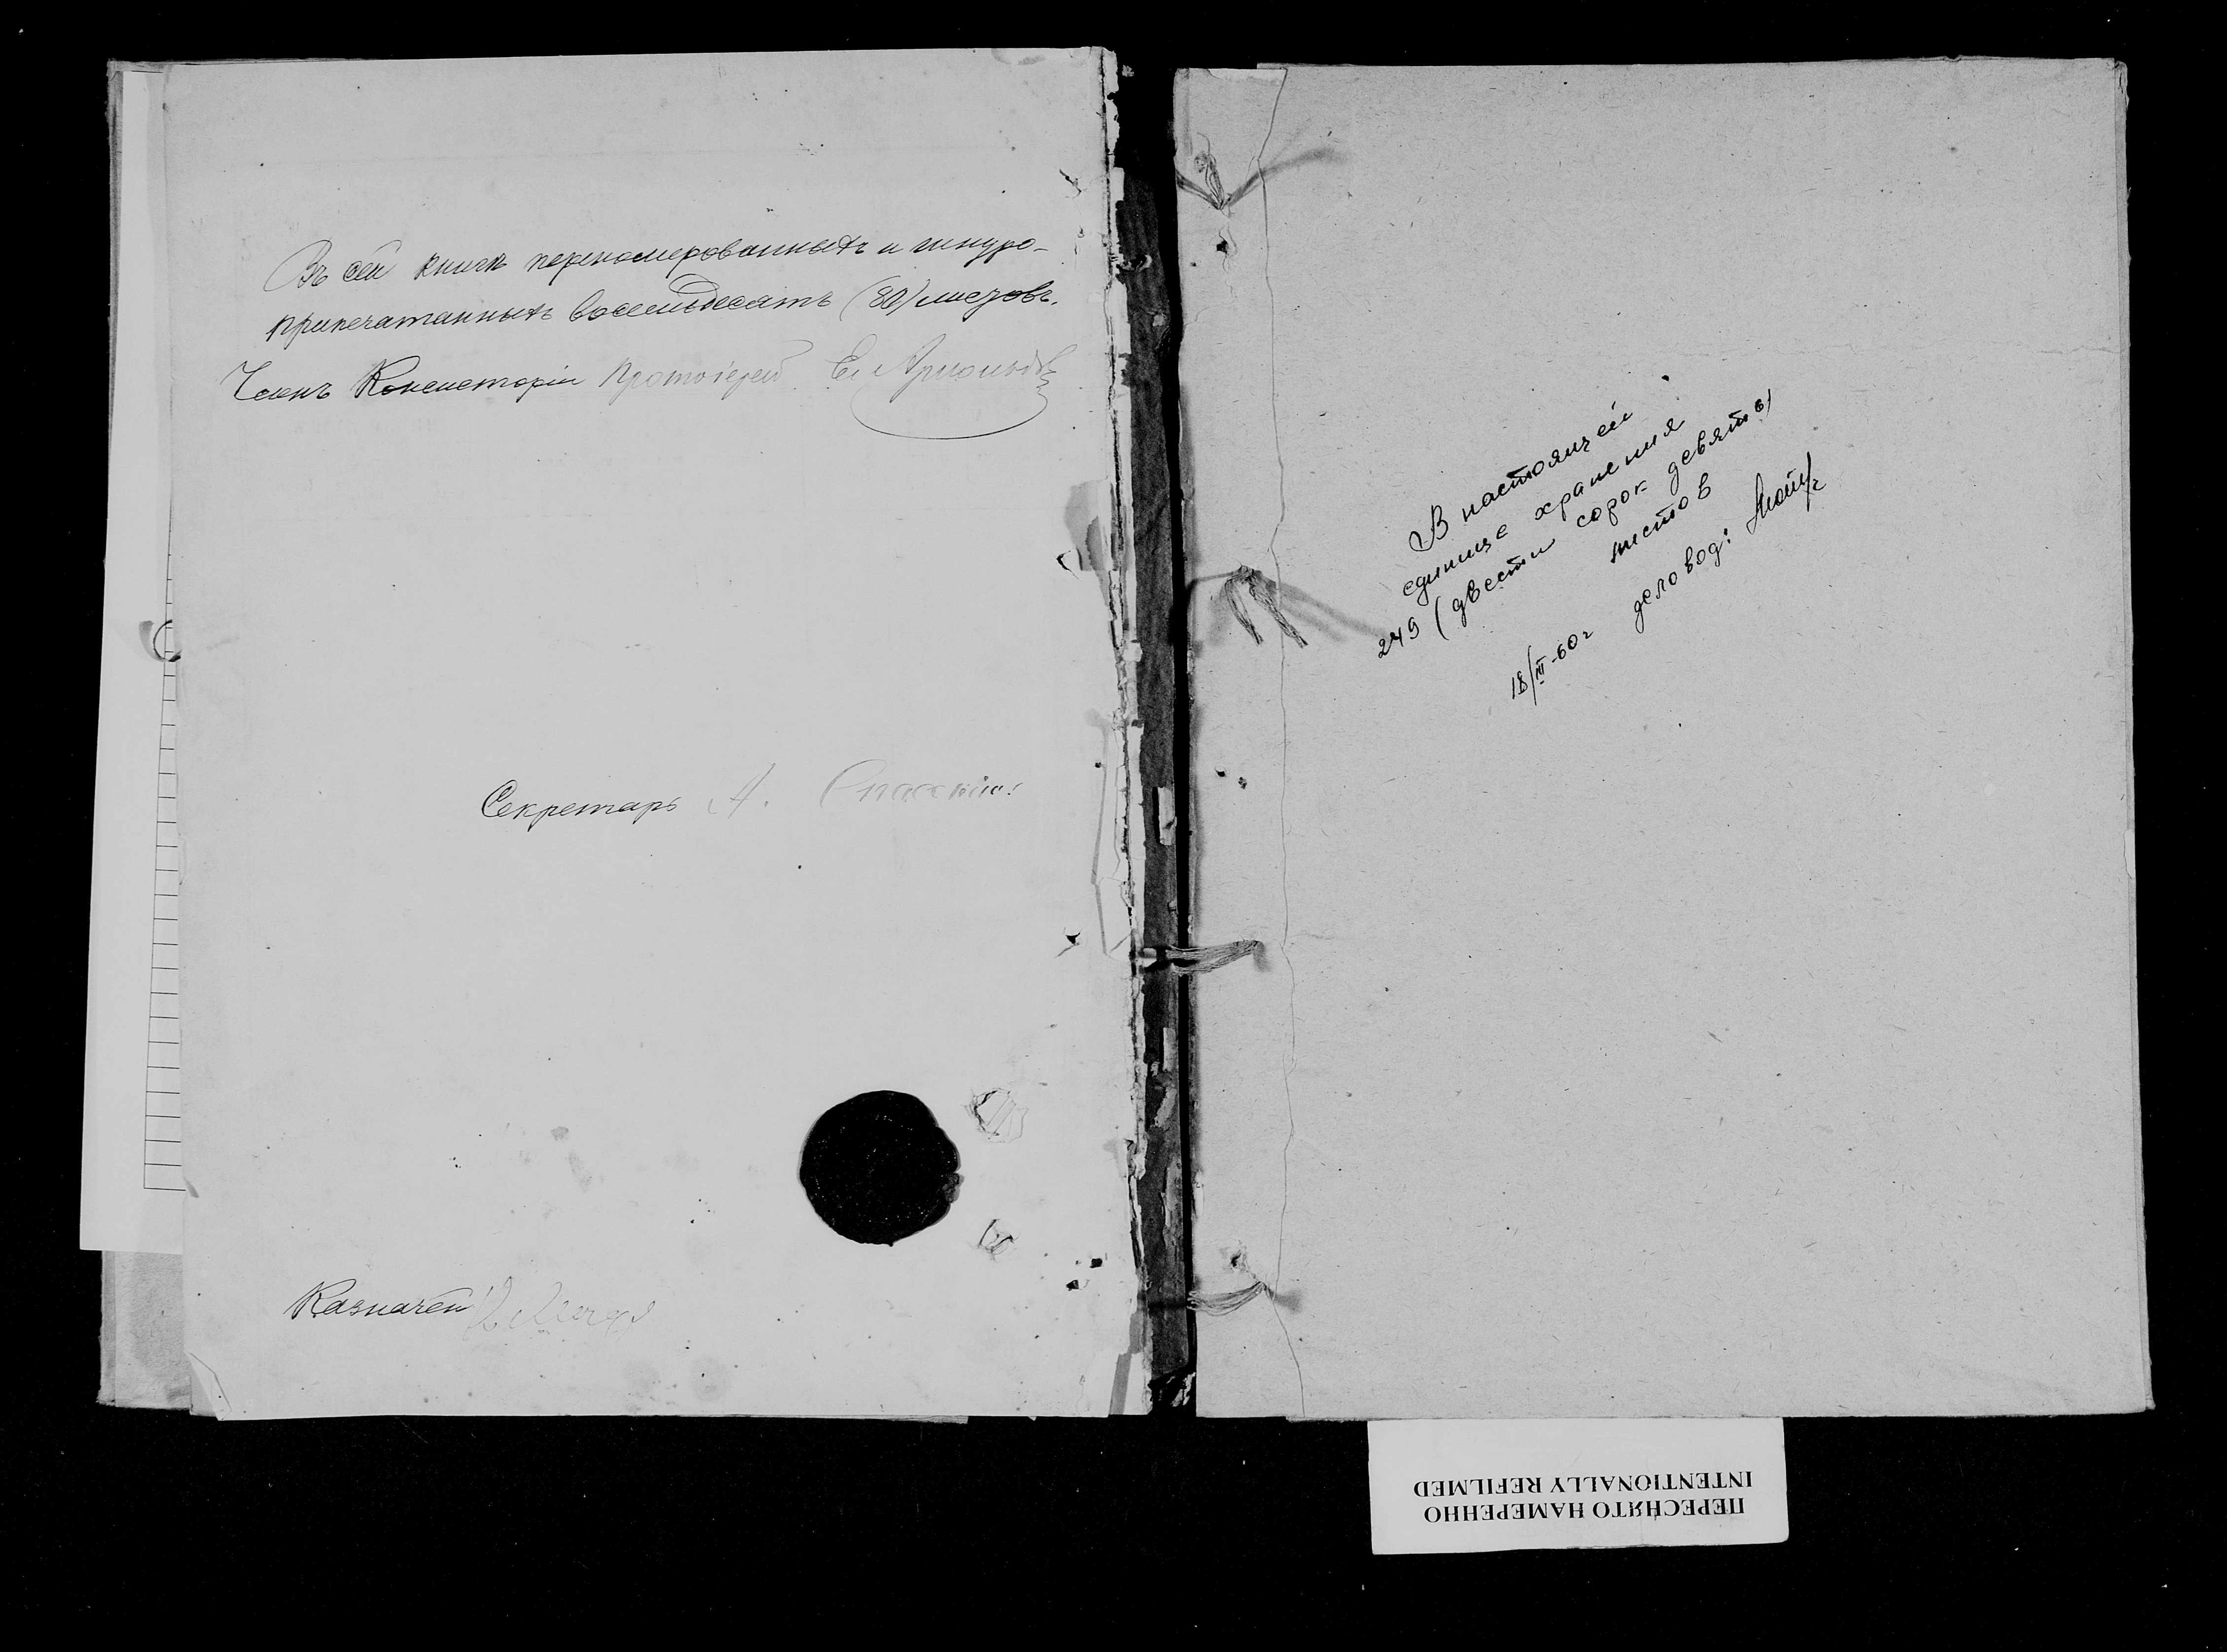 Въ сей книгѣ переномерованныхъ и шнуро-
припечатанныхъ восемьдесятъ (80) листовъ.
Членъ Консисторіи Протоіерей Ел.
Секретарь А. Спасскій
Казначей
В настоящей
единице хранения
249 (двести сорок девять)
листов
18/III-60г деловод:
ПЕРЕСНЯТО НАМЕРЕННО
INTENTIONALLY REFILMED